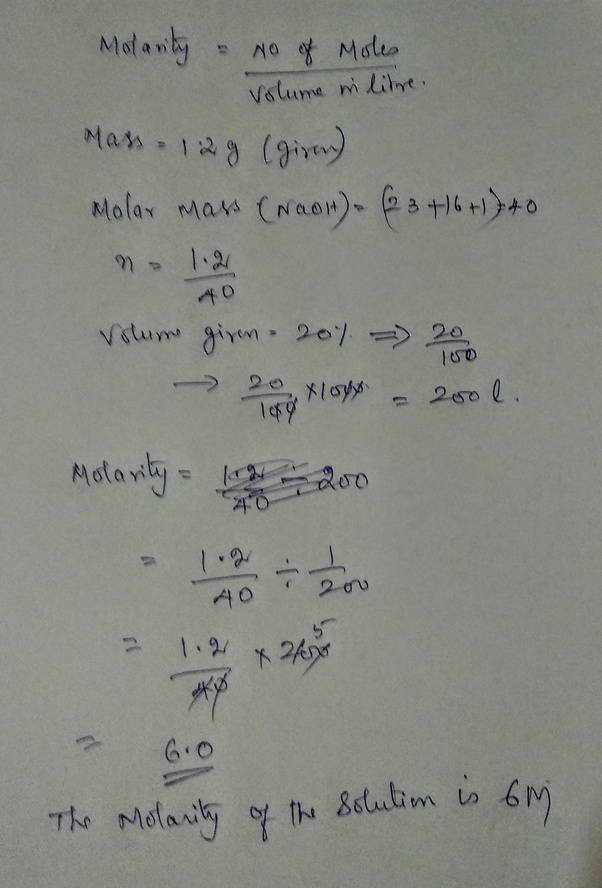 Molarity = No of Moles
Volume in litre.
Mass = 1.2 g (given)
Molar Mass (NaOH) = (23+16+1)=40
n = 1.2
40
Volume given = 20% ⇒ 20
100
→ 20 × 1000 = 200 l.
100
Molarity = 1.2 ÷ 200
40
= 1.2 ÷ 1
40 200
= 1.2 × 200 5
40
= 6.0
The Molarity of the Solution is 6M